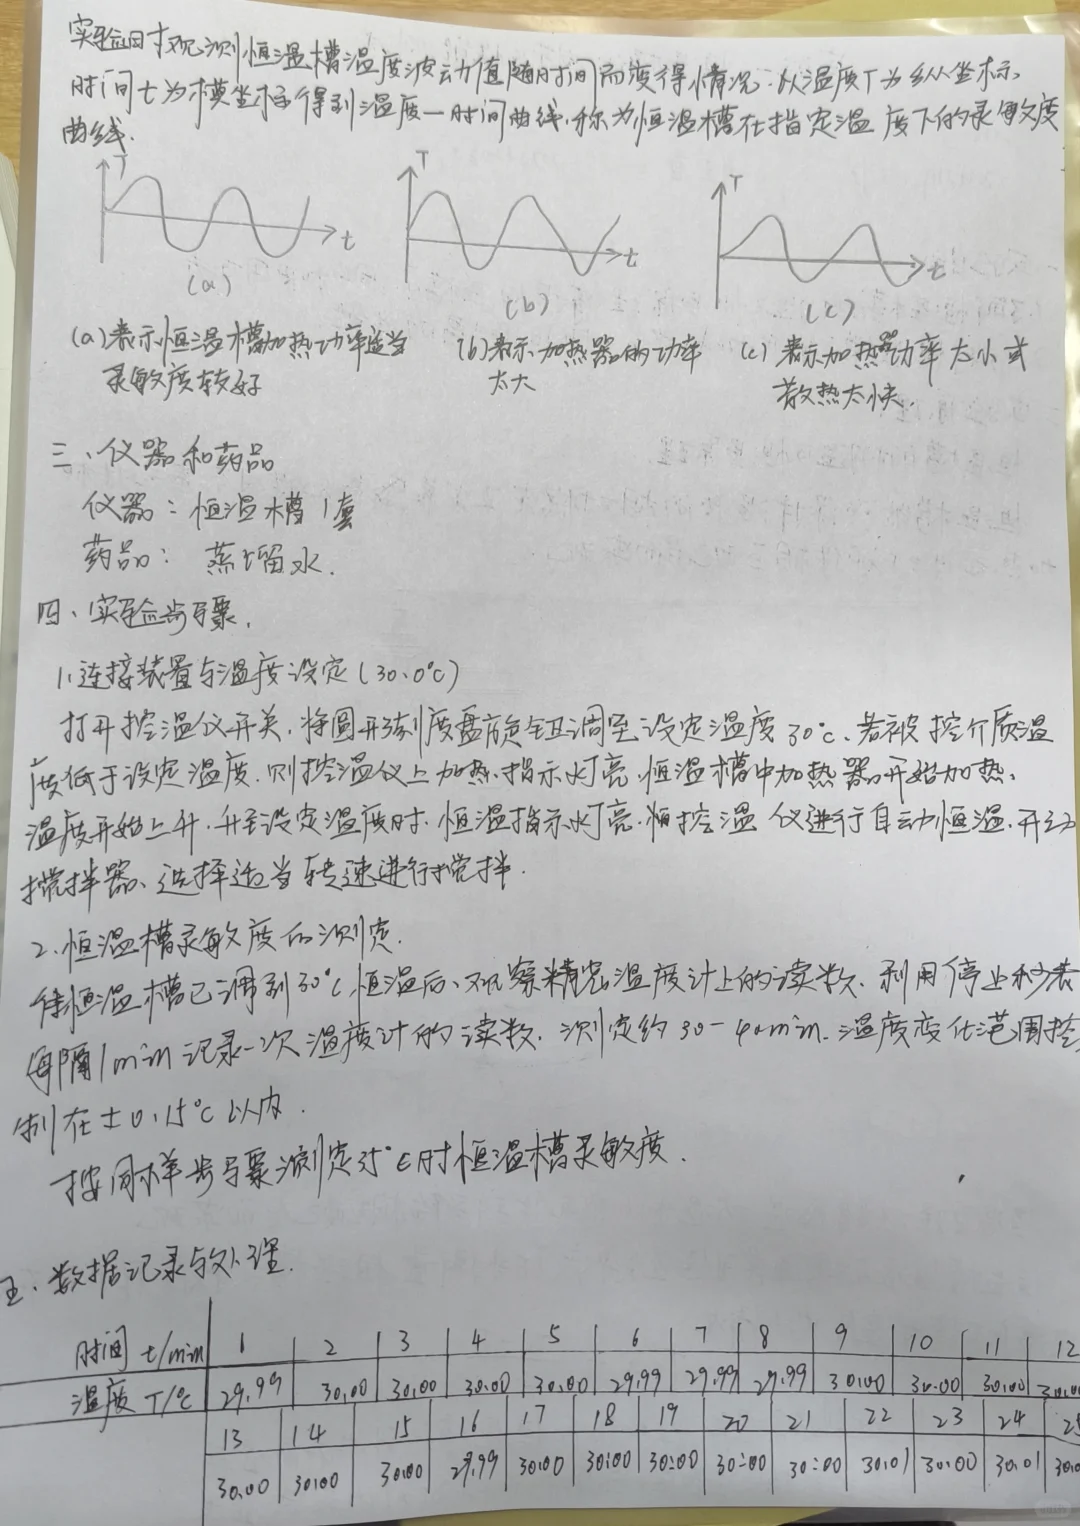 实验时观测恒温槽温度波动值随时间而变得情况.以温度T为纵坐标、
时间t为横坐标得到温度一时间曲线,称为恒温槽在指定温度下的灵敏度
曲线.
T t T t T t
(a) (b) (c)
(a)表示恒温槽加热功率适当 (b)表示加热器的功率 (c)表示加热器功率太小或
灵敏度较好 太大 散热太快.
三、仪器和药品
仪器:恒温槽1套
药品: 蒸馏水.
四、实验步骤.
1.连接装置与温度设定(30.0℃)
打开控温仪开关,将圆形刻度盘旋钮调至设定温度30℃、若被控介质温
度低于设定温度.则控温仪上加热.指示灯亮.恒温槽中加热器开始加热、
温度开始上升.升至设定温度时.恒温指示灯亮.控温仪进行自动恒温.开动
搅拌器、选择适当转速进行搅拌.
2.恒温槽灵敏度的测定.
待恒温槽已调到30℃,恒温后、观察精密温度计上的读数.利用停止秒表
每隔1min记录一次温度计的读数.测定约30-40min.温度变化范围控
制在±0.15℃以内.
按同样步骤测定35℃时恒温槽灵敏度.
五、数据记录与处理.
时间 t/min 1 2 3 4 5 6 7 8 9 10 11 12
温度 T/℃ 29.99 30.00 30.00 30.00 30.00 29.99 29.99 29.99 30.00 30.00 30.00
13 14 15 16 17 18 19 20 21 22 23 24
30.00 30.00 30.00 29.99 30.00 30.00 30.00 30.00 30.00 30.01 30.00 30.01